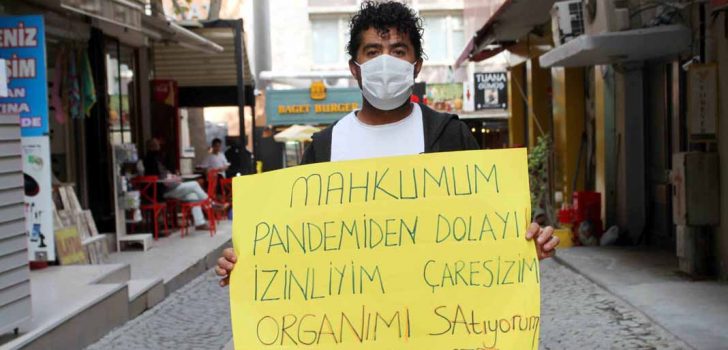 ENİZ
BAGET BURGER
TUANA
GÜMÜŞ
MAHKUMUM
PANDEMİDEN DOLAYI
İZİNLİYİM ÇARESİZİM
ORGANIMI SATIYORUM